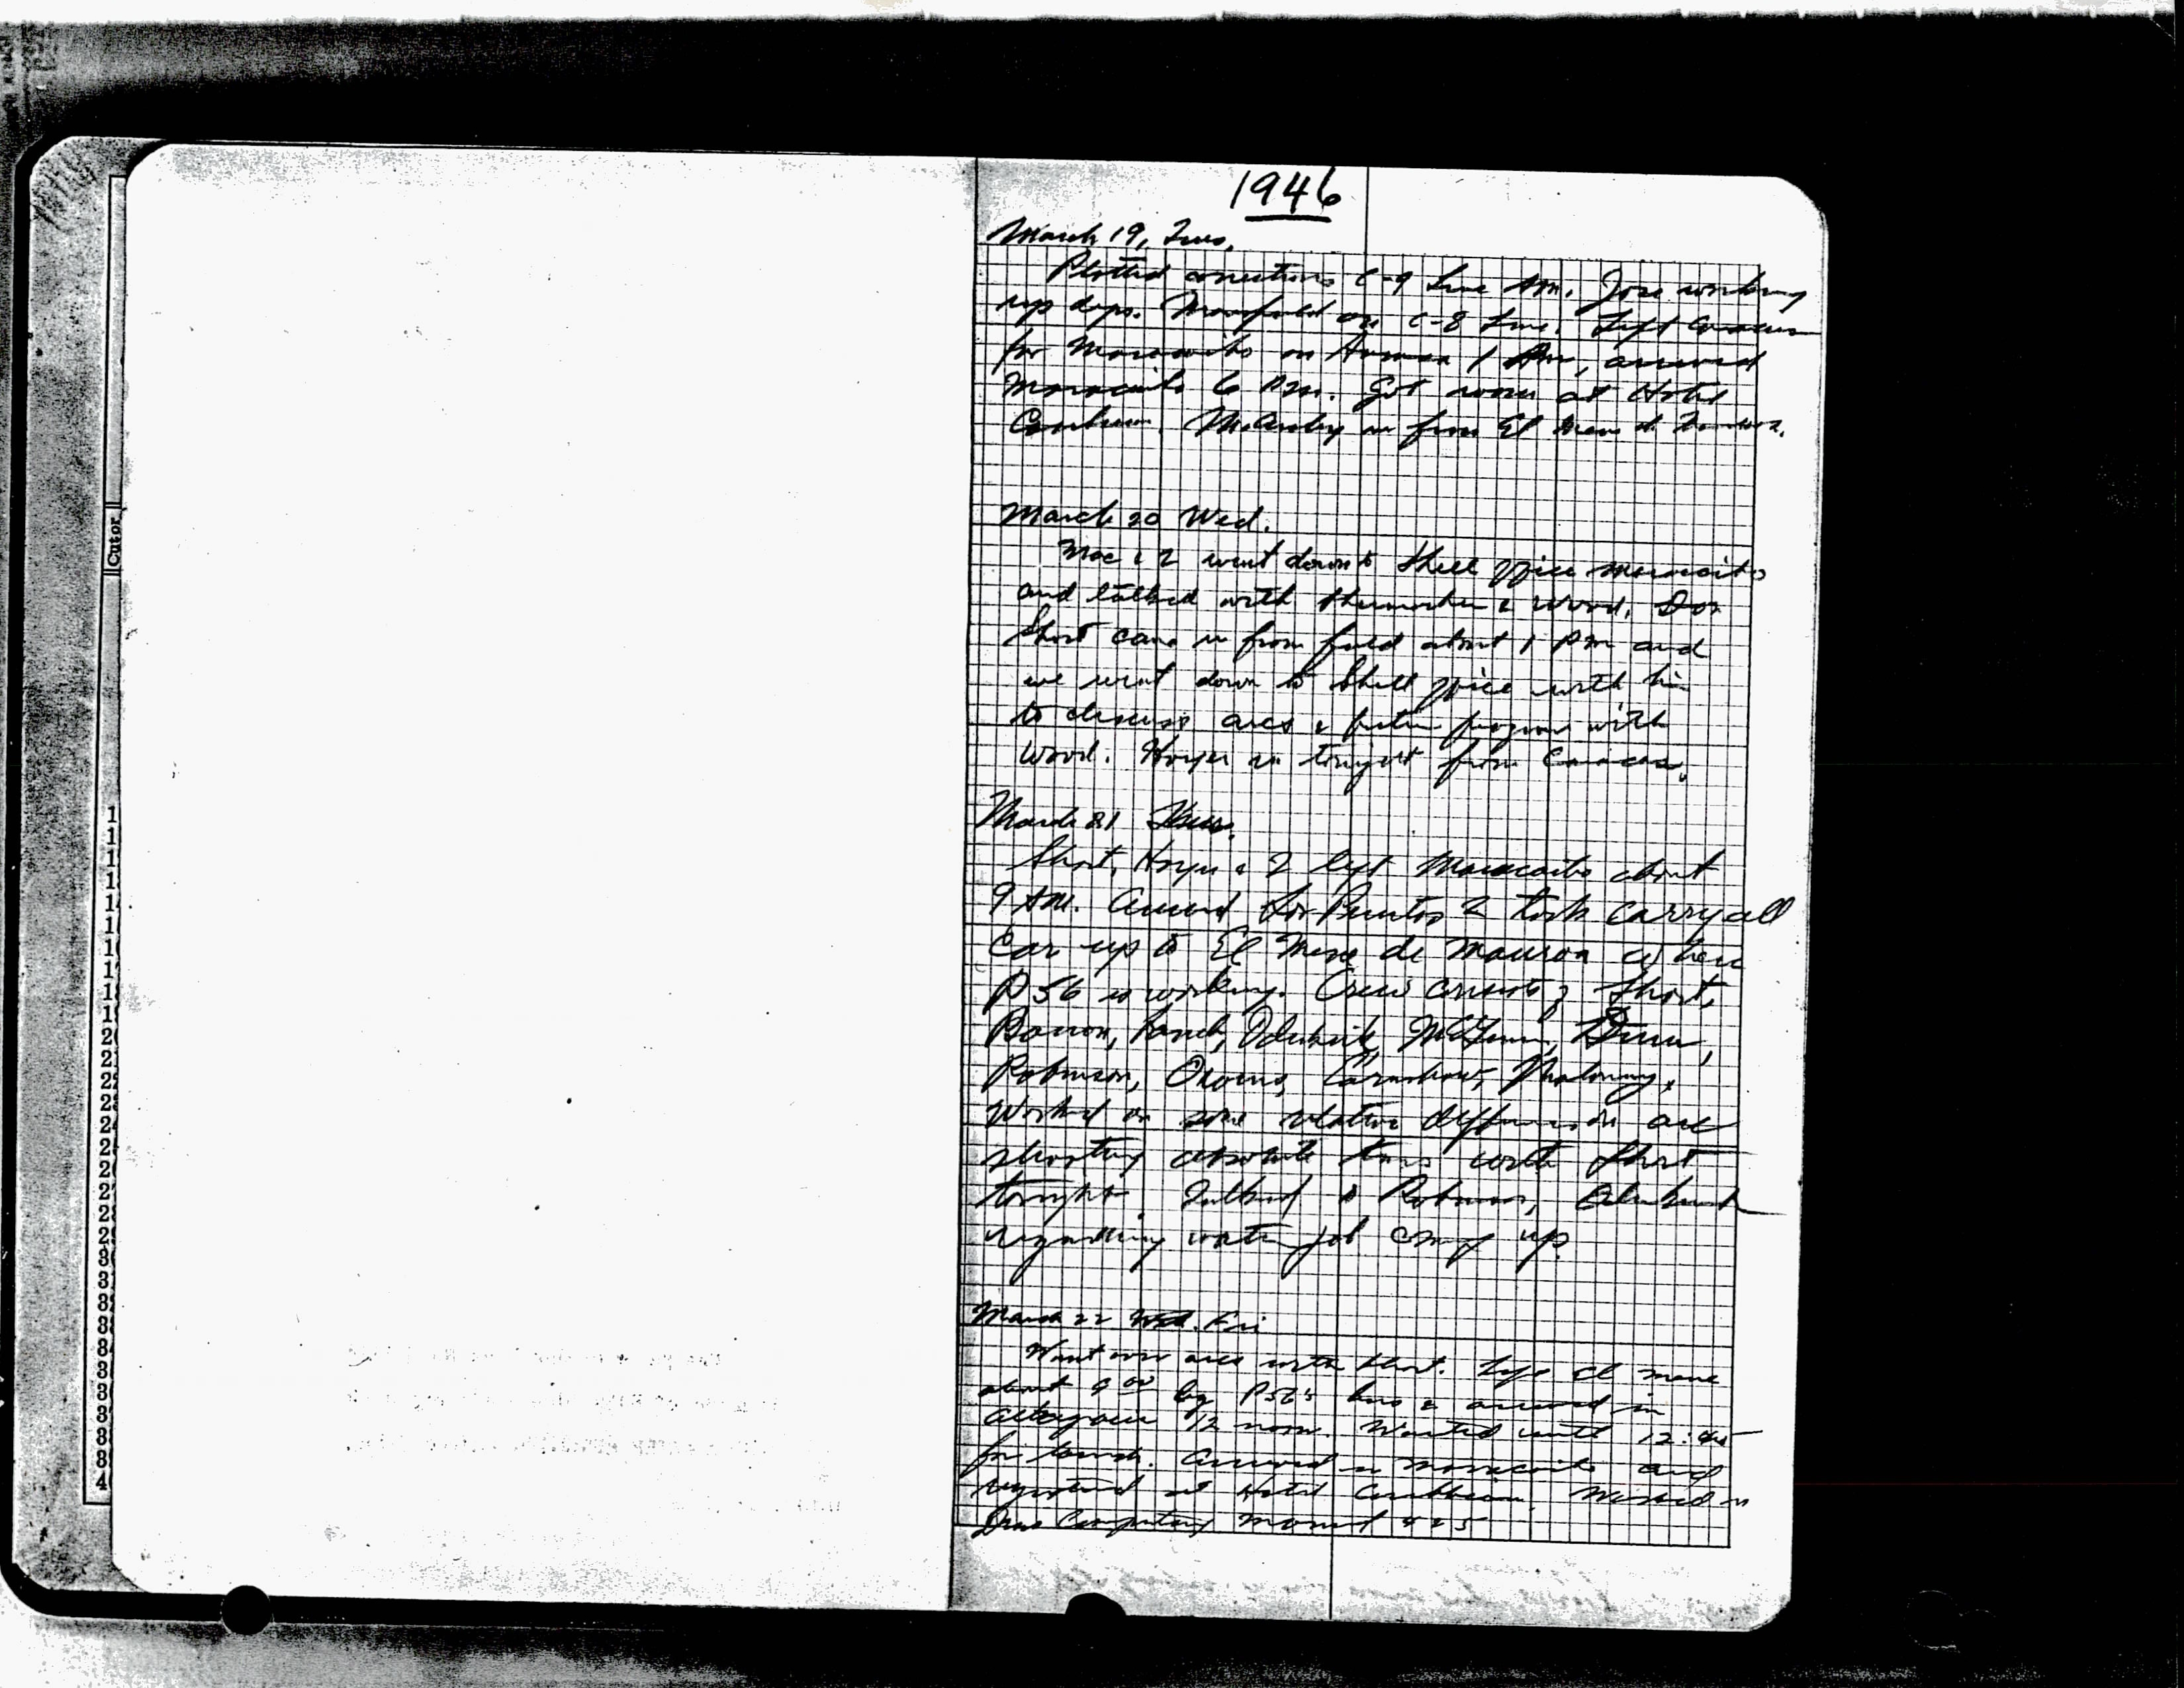 1946
March 19, Tues.
Plotted corrections C-9 Line AM. Jose working
up dips. on C-8 Line. Left Caracas
for Maracaibo on 1 PM, arrived
Maracaibo 6 PM. Got room at Hotel
Caribbean. in from El Mene de
March 20 Wed.
Mac & I went down to Shell office Maracaibo
and talked with & Wood. Don
Short came in from field about 1 PM and
we went down to Shell office with him
to discuss arcs & future program with
Wood. Hoyer in tonight from Caracas.
March 21 Thurs.
Short, Hoyer & I left Maracaibo about
9 AM. Arrived Los Puertos & took carryall
car up to El Mene de Mauroa where
P 56 is working. Crew consists of Short,
Barron,
Robinson, Owens, Earnshaw, Maloney.
Worked on some relative in arc
shooting absolute times with Short
tonight. Talked to Robinson,
regarding water job coming up.
March 22 Wed. Fri
Went over arcs with Short. Left El Mene
about 9 00 by P56's bus & arrived in
Altagracia 12 noon. Waited until 12:45
for launch. Arrived in Maracaibo and
registered at Hotel Caribbean. Worked on
Computing 4 & 5